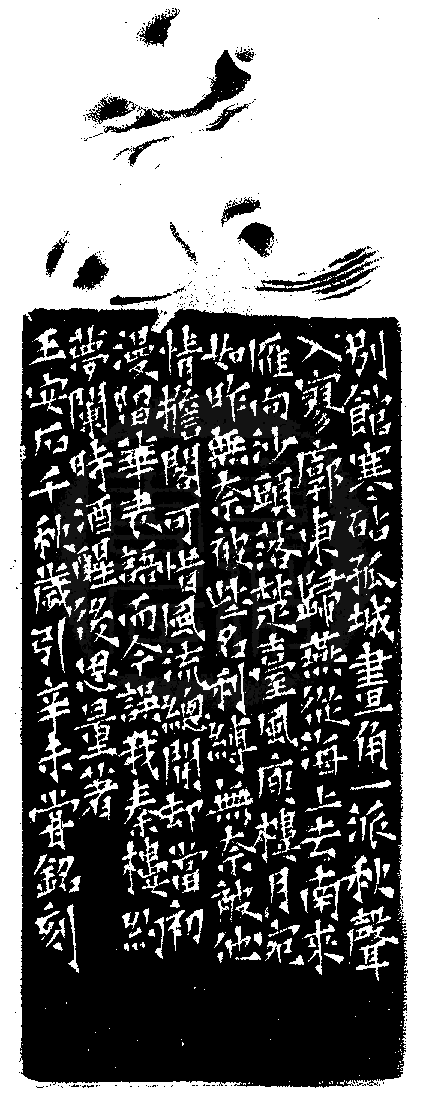 別館寒砧孤城畫角一派秋聲
入寥廓東歸燕從海上去南來
雁向沙頭落楚臺風庾樓月宛
如昨無奈被些名利縛無奈被他
情擔閣可惜風流總閒却當初
漫留華表語而今誤我秦樓約
夢闌時酒醒後思量著
王安石千秋歲引辛未銘刻